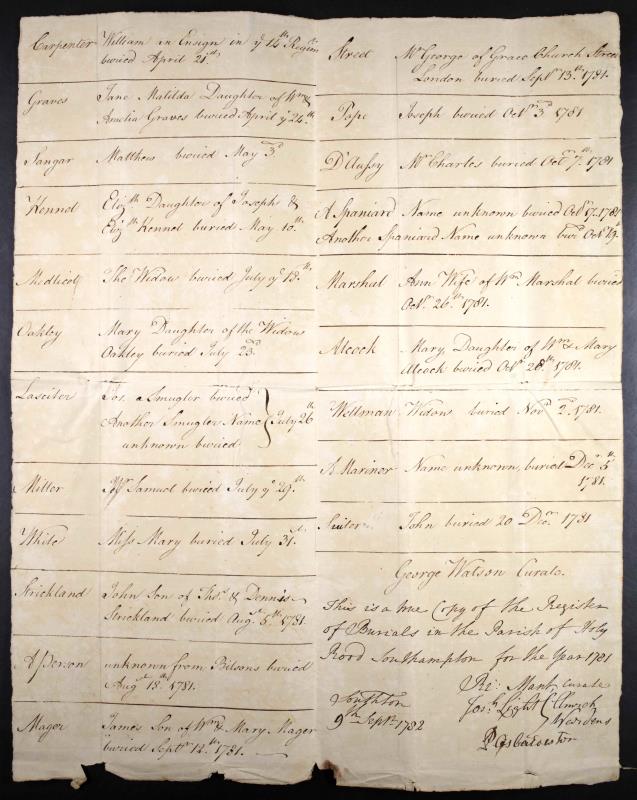 Carpenter William an Ensign in yᵉ 14ᵗʰ Regimᵗ
buried April 21ˢᵗ
Graves Jane Matilda Daughter of Wᵐ &
Amelia Graves buried April yᵉ 24ᵗʰ
Sangar Matthew buried May 3ᵈ
Kennet Elizᵗʰ Daughter of Joseph &
Elizᵗʰ Kennet buried May 10ᵗʰ
Medlicot The Widow buried July yᵉ 18ᵗʰ
Oakley Mary Daughter of the Widow
Oakley buried July 23ʳᵈ
Lasciter Jos. a Smugler buried
Another Smugler Name July 26ᵗʰ
unknown buried
Miller Mʳ Samuel buried July yᵉ 29ᵗʰ
White Miss Mary buried July 31ˢᵗ
Strickland John Son of Thoˢ & Dennis
Strickland buried Augˢᵗ 5ᵗʰ 1781
A Person unknown from Bitsons buried
Augˢᵗ 18ᵗʰ 1781.
Mager James Son of Wᵐ & Mary Mager
buried Septʳ 12ᵗʰ 1781.
Street Mʳ George of Grace Church Street
London buried Septʳ 13ᵗʰ 1781.
Pope Joseph buried Octʳ 3ᵈ 1781
D'Aussy Mʳ Charles buried Octʳ 7ᵗʰ 1781
A Spaniard Name unknown buried Octʳ 17. 1781
Another Spaniard Name unknown buᵈ Octʳ 19ᵗʰ
Marshal Ann Wife of Wᵐ Marshal buried
Octʳ 26ᵗʰ 1781.
Alcock Mary, Daughter of Wᵐ & Mary
Alcock buried Octʳ 28ᵗʰ 1781.
Wellman Widow buried Novʳ 2ᵈ 1781.
A Mariner Name unknown, buried Decʳ 5ᵗʰ
1781.
Suiter John buried 20 Decʳ 1781
George Watson Curate.
This is a true Copy of the Register
of Burials in the Parish of Holy
Rood Southampton for the Year 1781
Ri: Mant, Curate
Josʰ Light Church
Wardens
Southton
9ᵗʰ Septʳ 1782